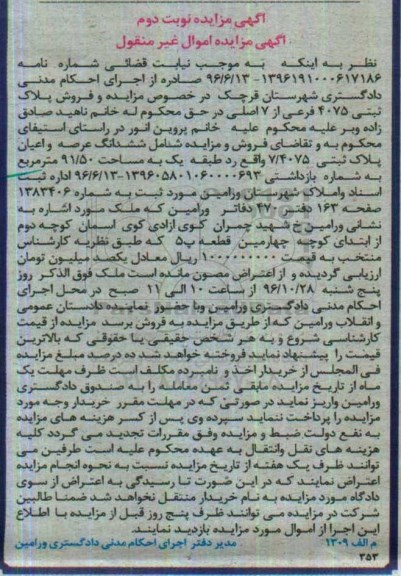 آگهی مزایده نوبت دوم
آگهی مزایده اموال غیر منقول
نظر به اینکه به موجب نیابت قضائی شماره نامه
۱۳۹۶۱۹۱۰۰۰۶۱۷۱۸۶ - ۹۶/۶/۱۳ صادره از اجرای احکام مدنی
دادگستری شهرستان قرچک در خصوص مزایده و فروش پلاک
ثبتی ۴۰۷۵ فرعی از ۷ اصلی در حق محکوم له خانم ناهید صادق
زاده وبر علیه محکوم علیه خانم پروین انور در راستای استیفای
محکوم به و تقاضای فروش و مزایده شامل ششدانگ عرصه و اعیان
پلاک ثبتی ۷/۴۰۷۵ واقع در طبقه یک به مساحت ۹۱/۵۰ مترمربع
به شماره بازداشتی ۱۳۹۶۰۵۸۰۱۰۶۰۰۰۰۶۹۳-۹۶/۶/۱۳ اداره ثبت
اسناد واملاک شهرستان ورامین مورد ثبت به شماره ۱۳۸۳۴۰۶
صفحه ۱۶۳ دفتر ۴۷ دفاتر ورامین که ملک مورد اشاره به
نشانی ورامین خ شهید چمران کوی ازادی کوی اسمان کوچه دوم
از ابتدای کوچه چهارمین قطعه پ۵ که طبق نظریه کارشناس
منتخب به قیمت ۱۰۰۰۰۰۰۰۰۰ ریال معادل یکصد میلیون تومان
ارزیابی گردیده و از اعتراض مصون مانده است ملک فوق الذکر روز
پنج شنبه ۹۶/۱۰/۲۸ از ساعت ۱۰ الی ۱۱ صبح در محل اجرای
احکام مدنی دادگستری ورامین وبا حضور نماینده دادستان عمومی
و انقلاب ورامین که از طریق مزایده به فروش برسد مزایده از قیمت
کارشناسی شروع و به هر شخص حقیقی یا حقوقی که بالاترین
قیمت را پیشنهاد نماید فروخته خواهد شد ده درصد مبلغ مزایده
فی المجلس از خریدار اخذ و نامبرده مکلف است ظرف مهلت یک
ماه از تاریخ مزایده مابقی ثمن معامله را به صندوق دادگستری
ورامین واریز نماید در صورتی که در مهلت مقرر خریدار وجه مورد
مزایده را پرداخت ننماید سپرده وی پس از کسر هزینه های مزایده
به نفع دولت ضبط و مزایده وفق مقررات تجدید می گردد کلیه
هزینه های نقل وانتقال به عهده محکوم علیه است طرفین می
توانند ظرف یک هفته از تاریخ مزایده نسبت به نحوه انجام مزایده
اعتراض نمایند که در این صورت تا رسیدگی به اعتراض از سوی
دادگاه مورد مزایده به نام خریدار منتقل نخواهد شد ضمنا طالبین
شرکت در مزایده می توانند ظرف پنج روز قبل از مزایده با اطلاع
این اجرا از اموال مورد مزایده بازدید نمایند.
م الف ۱۳۰۹ مدیر دفتر اجرای احکام مدنی دادگستری ورامین
۳۵۳